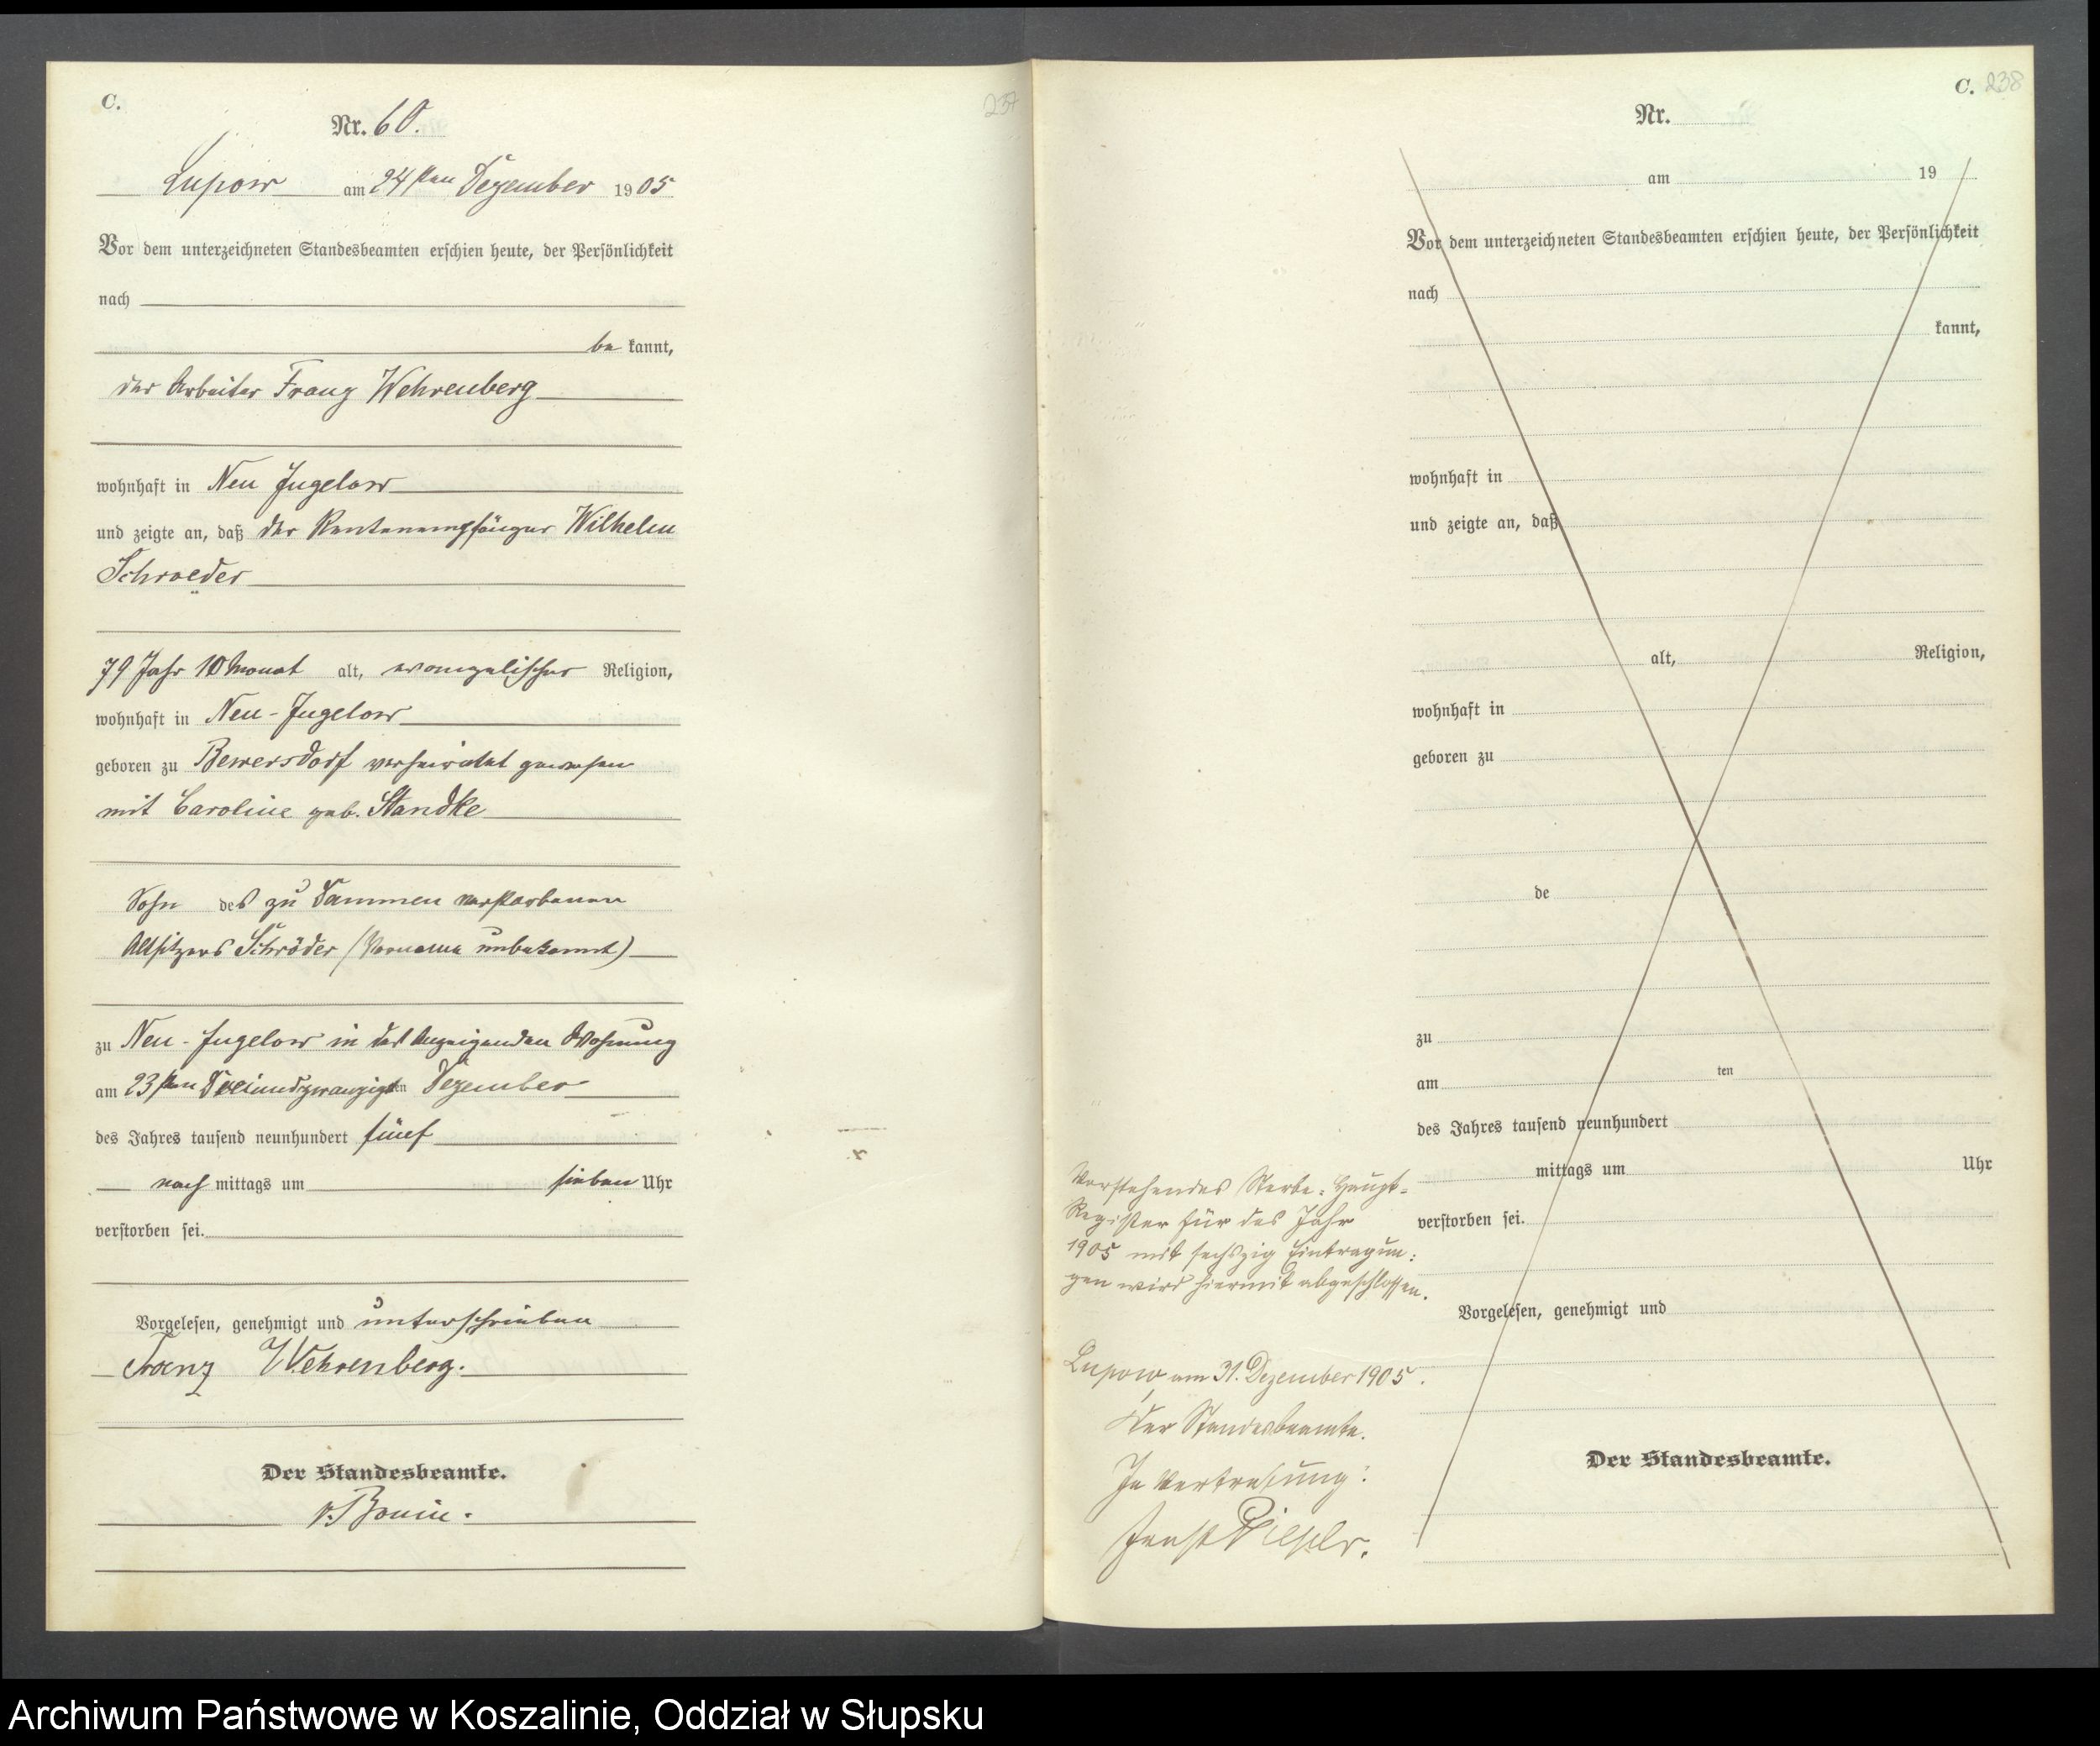 C.
237
Nr. 60.
Lupow am 24ten Dezember 1905
Vor dem unterzeichneten Standesbeamten erschien heute, der Persönlichkeit
nach
be kannt,
der Arbeiter Franz Wehrenberg
wohnhaft in Neu Jugelow
und zeigte an, daß der Rentenempfänger Wilhelm
Schroeder
79 Jahr 10 Monat alt, evangelischer Religion,
wohnhaft in Neu-Jugelow
geboren zu Bewersdorf verheiratet gewesen
mit Caroline geb. Standke
Sohn des zu Dammen verstorbenen
Altsitzers Schröder (Vorname unbekannt)
zu Neu-Jugelow in des Anzeigenden Wohnung
am 23ten Dreiundzwanzigsten Dezember
des Jahres tausend neunhundert fünf
nach mittags um sieben Uhr
verstorben sei.
Vorgelesen, genehmigt und unterschrieben
Franz Wehrenberg.
Der Standesbeamte.
v. Bonin.
C. 238
Nr.
am 19
Vor dem unterzeichneten Standesbeamten erschien heute, der Persönlichkeit
nach
kannt,
wohnhaft in
und zeigte an, daß
alt, Religion,
wohnhaft in
geboren zu
de
zu
am ten
des Jahres tausend neunhundert
mittags um Uhr
verstorben sei.
Vorgelesen, genehmigt und
Der Standesbeamte.
Vorstehendes Sterbe-Haupt-
Register für das Jahr
1905 mit sechszig Eintragun-
gen wird hiermit abgeschlossen.
Lupow, am 31. Dezember 1905.
Der Standesbeamte.
In Vertretung:
Archiwum Państwowe w Koszalinie, Oddział w Słupsku